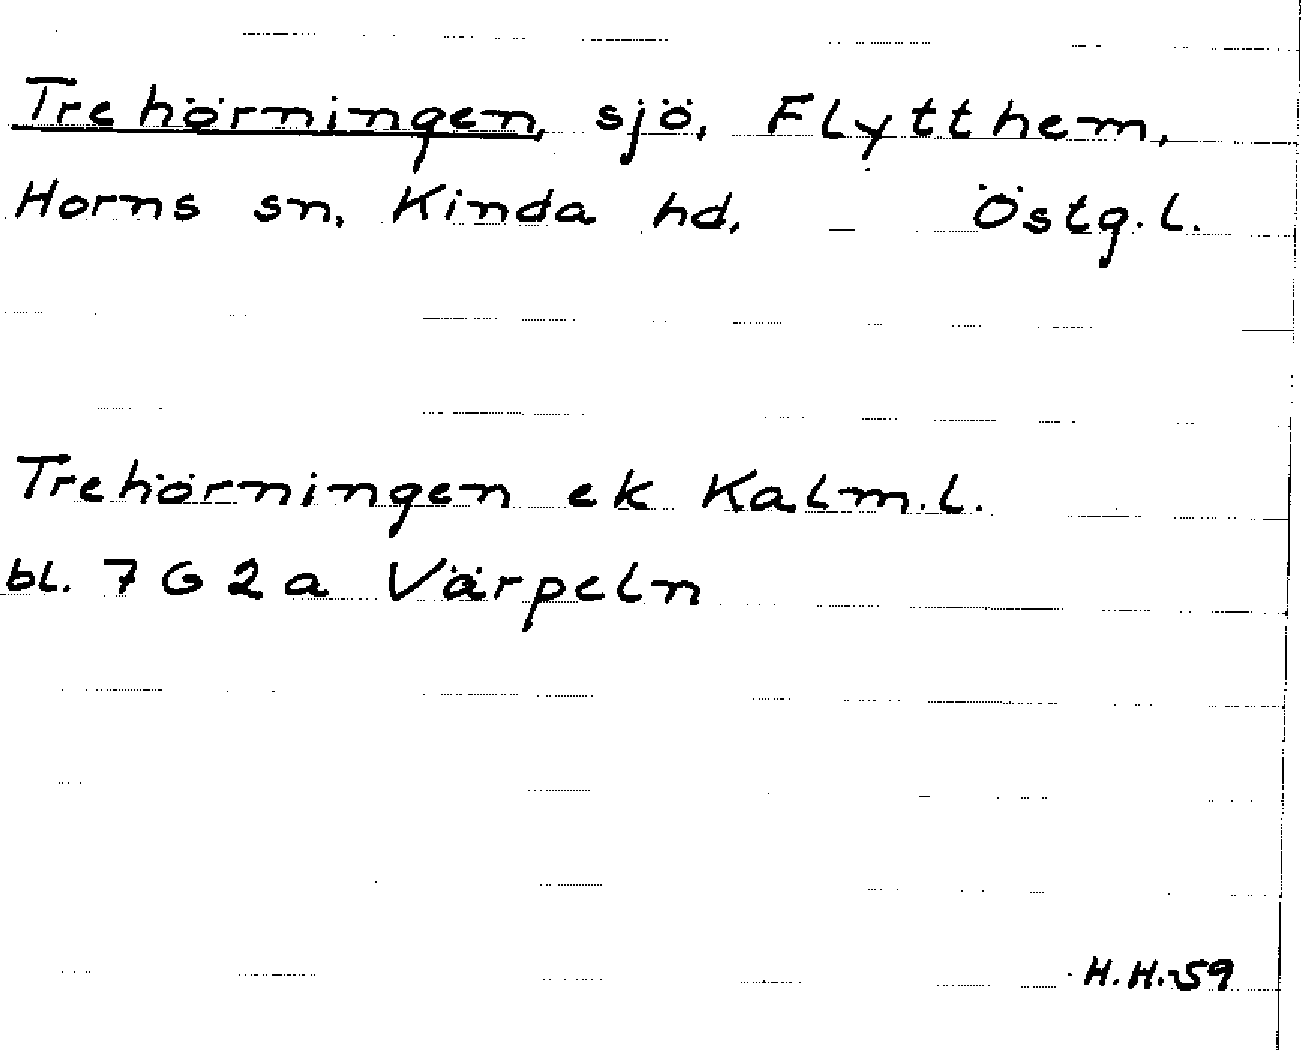 Trehörningen, sjö, Flytthem,
Horns sn, Kinda hd, Östg.l.
Trehörningen ek Kalm.l.
bl. 7 G 2 a Värpeln
H.H.-59